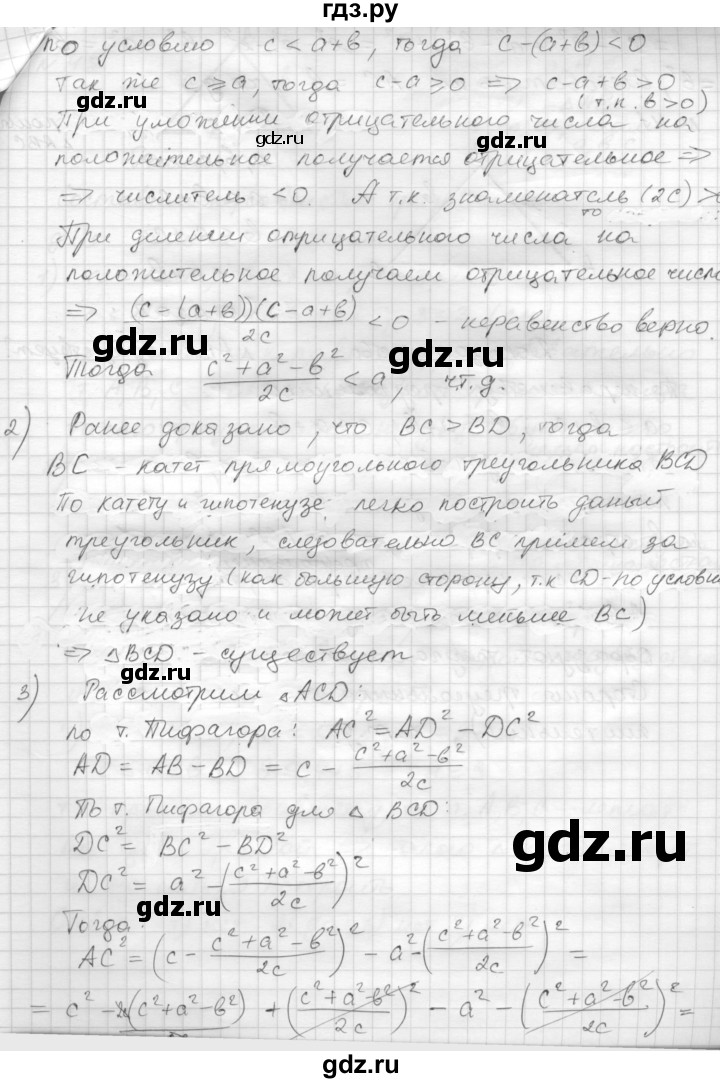 гдз.ру
по условию c < a+b, тогда c-(a+b) < 0
Так же c ≥ a, тогда c-a ≥ 0 ⇒ c-a+b > 0
(т.к. b>0)
При умножении отрицательного числа на
положительное получается отрицательное ⇒
⇒ числитель < 0. А т.к. знаменатель (2c) >
то
При делении отрицательного числа на
положительное получаем отрицательное число
⇒ (c-(a+b))(c-a+b)/2c < 0 - неравенство верно.
Тогда (c²+a²-b²)/2c < a, ч.т.д.
2) Ранее доказано, что BC > BD, тогда
BC - катет прямоугольного треугольника BCD
По катету и гипотенузе легко построить даный
треугольник, следовательно BC примем за
гипотенузу (как большую сторону, т.к CD - по услови
не указано и может быть меньше BC)
⇒ △BCD - существует
3) Рассмотрим △ACD:
по т. Пифагора: AC² = AD² - DC²
AD = AB - BD = c - (c²+a²-b²)/2c
По т. Пифагора для △ BCD:
DC² = BC² - BD²
DC² = a² - ((c²+a²-b²)/2c)²
Тогда:
AC² = (c - (c²+a²-b²)/2c)² - a² - ((c²+a²-b²)/2c)² =
= c² - 2(c²+a²-b²) + ((c²+a²-b²)/2c)² - a² - ((c²+a²-b²)/2c)² =
gdz.ru
gdz.ru
gdz.ru
gdz.ru
gdz.ru
gdz.ru
gdz.ru
gdz.ru
gdz.ru
gdz.ru
gdz.ru
gdz.ru
gdz.ru